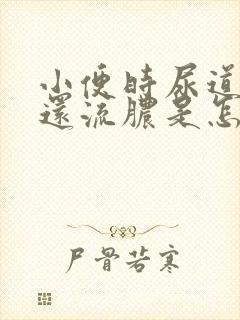 小便時尿道
還流膿是怎
尸骨若寒